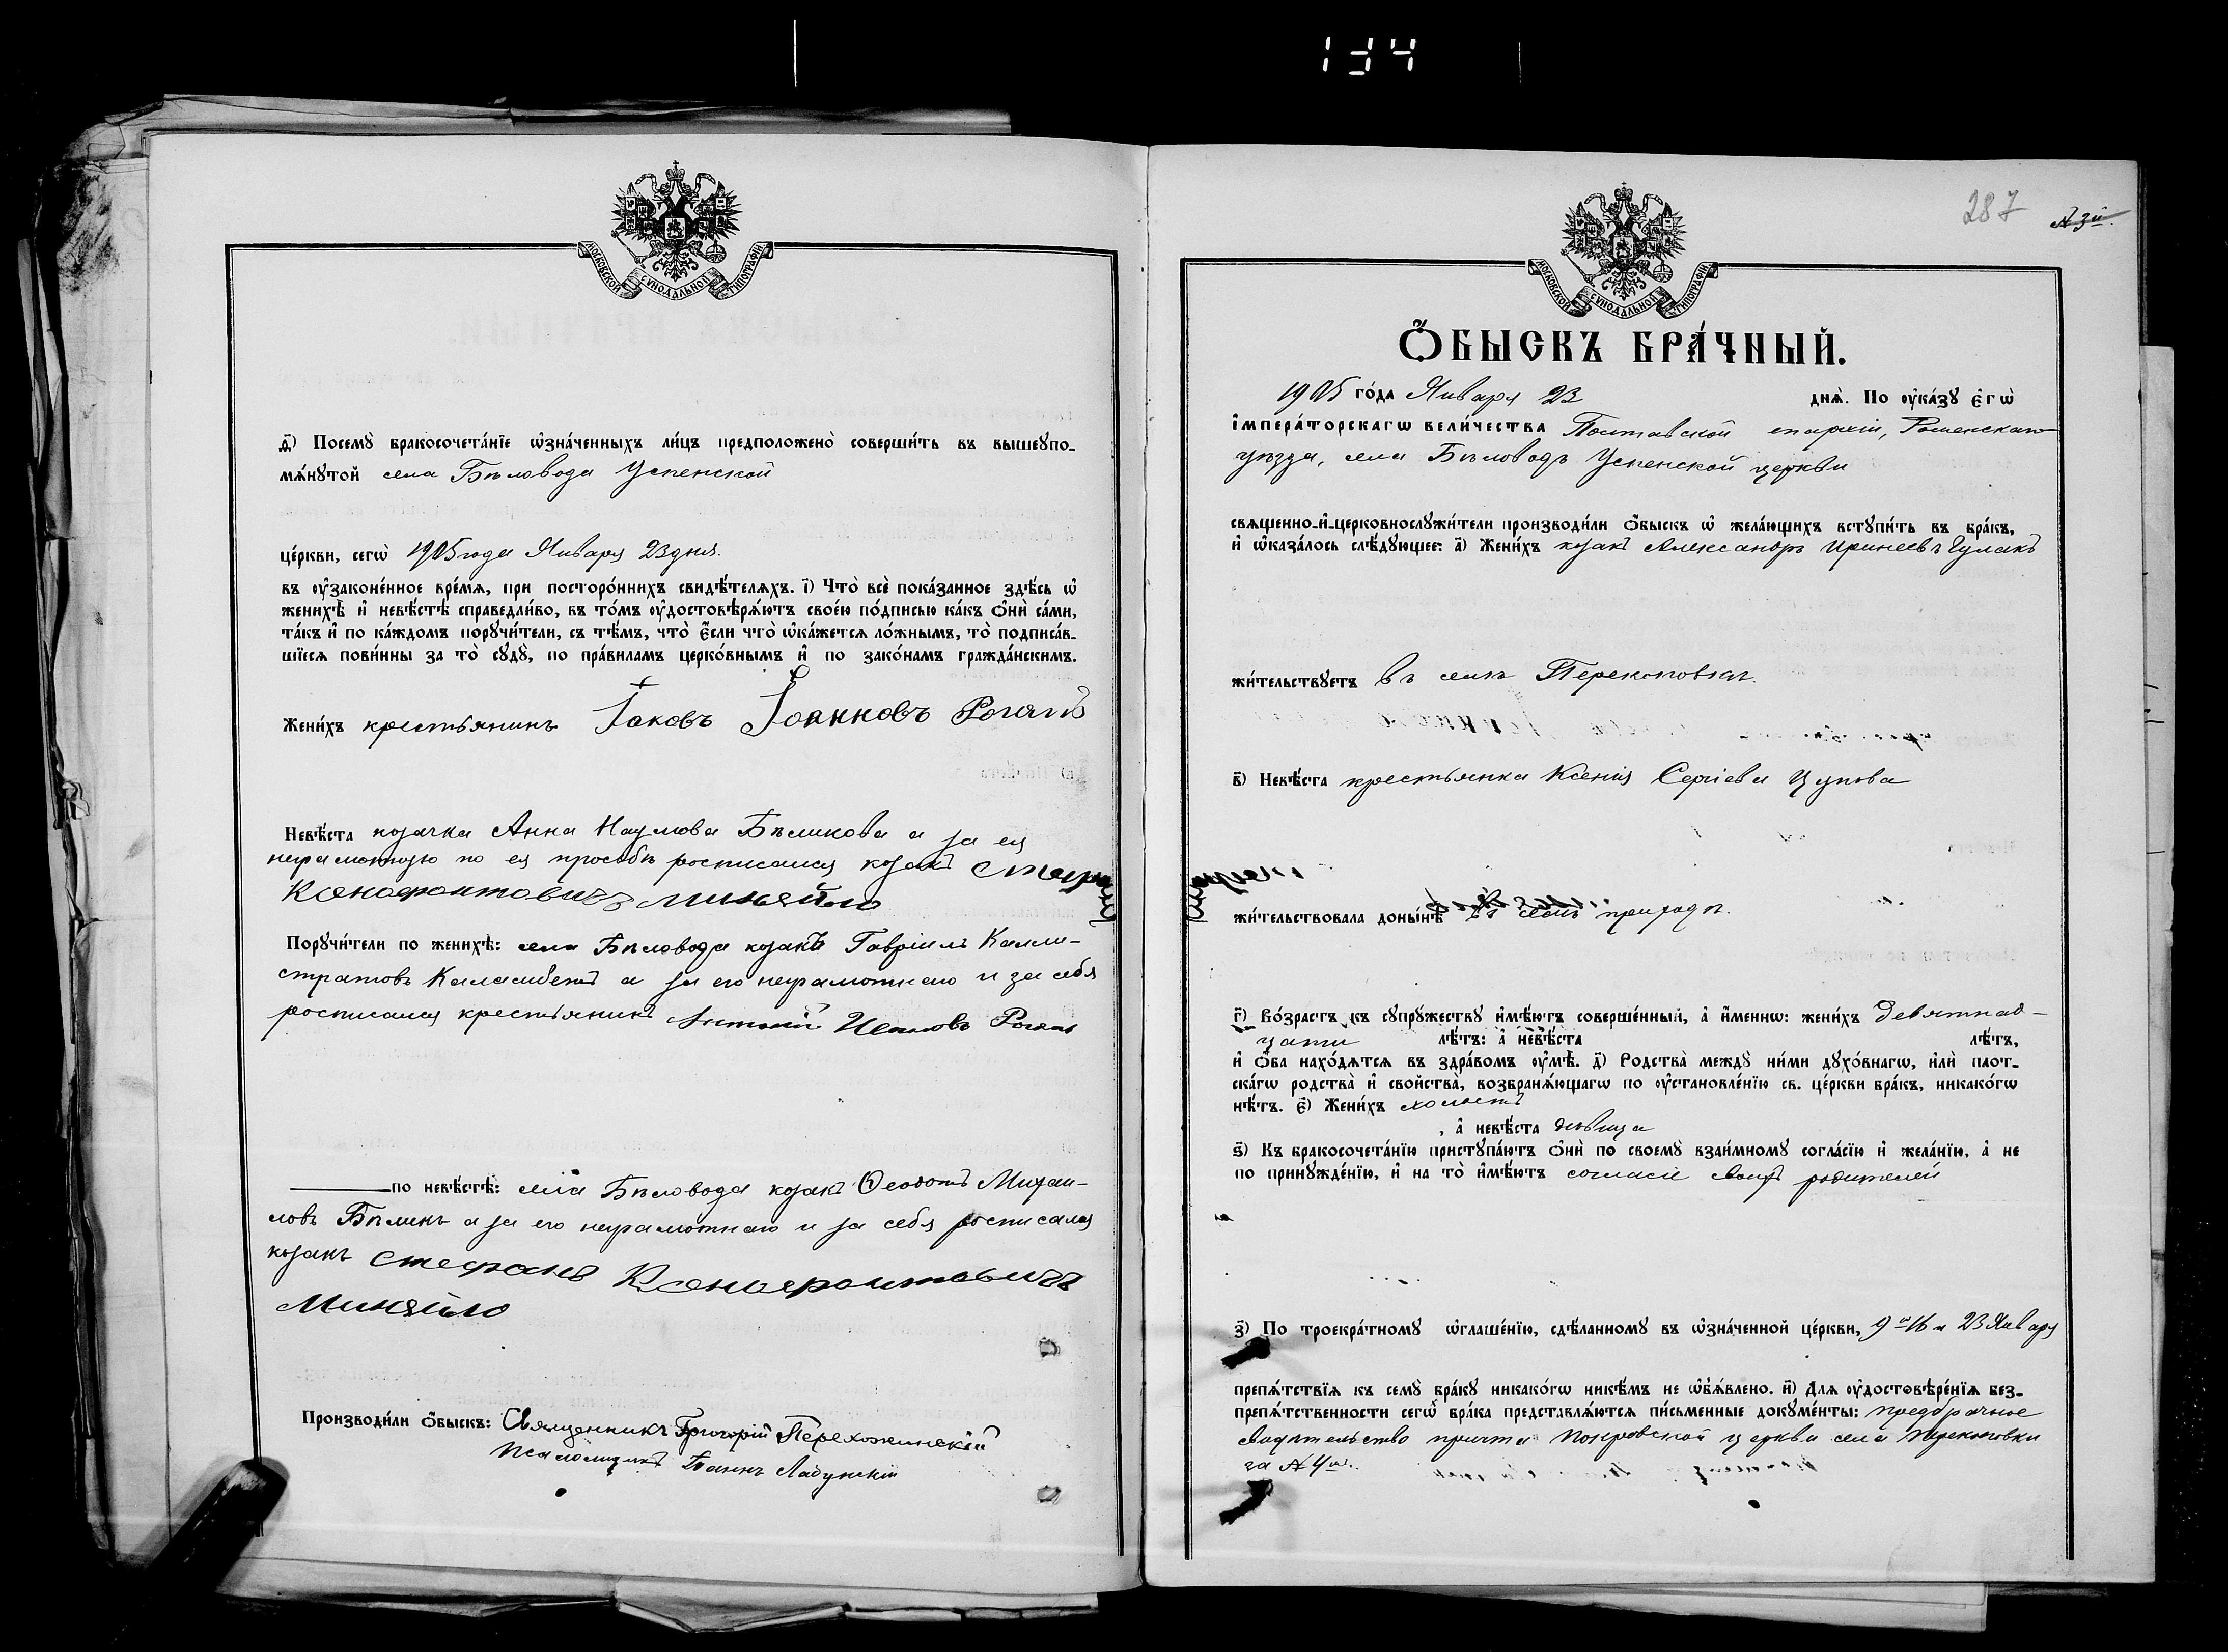 134
МОСКОВСКОЙ СѴНОДАЛЬНОЙ ТИПОГРАФІИ
д҃) Посемꙋ̀ бракосочета́нїе ѡ҆зна́ченныхъ ли́цъ предположено̀ соверши́ть въ вышеꙋпо-
мѧ́нꙋтой села Бѣловода Успенской
це́ркви, сегѡ̀ 1905 года Января 23 дня.
въ ᲂу҆законе́нное вре́мѧ, при посторо́ннихъ свидѣ́телѧхъ. і҃) Что̀ всѐ пока́занное здѣ́сь ѡ҆
женихѣ̀ и҆ невѣ́стѣ справедли́во, въ то́мъ ᲂу҆достовѣрѧ́ютъ свое́ю по́дписью ка́къ ѻ҆нѝ са́ми,
та́къ и҆ по ка́ждомъ порꙋчи́тели, съ тѣ́мъ, что̀ є҆́сли что̀ ѡ҆ка́жетсѧ ло́жнымъ, то̀ подписа́в-
шїесѧ пови́нны за то̀ сꙋдꙋ̀, по пра́виламъ церко́внымъ и҆ по зако́намъ гражда́нскимъ.
Жени́хъ крестьянинъ Іаковъ Іоанновъ Рогачъ
Невѣ́ста козачка Анна Наумова Бѣликова а за ея
неграмотную по ея просьбѣ росписался козакъ Стефанъ
Ксенофонтовичъ Миняйло
Порꙋчи́тели по женихѣ̀: села Бѣловода козакъ Гавріилъ Калли-
стратовъ Каламбетъ а за его неграмотнаго и за себя
росписался крестьянинъ Антоній Ивановъ
по невѣ́стѣ: села Бѣловода козакъ Ѳеодотъ Михаи-
ловъ Бѣликъ а за его неграмотнаго и за себя росписался
козакъ Стефанъ Ксенофонтовичъ
Миняйло
Производи́ли ѻ҆́быскъ: Священникъ Григорій
Псаломщикъ Іоаннъ Ладунскій
287 № 3й
МОСКОВСКОЙ СѴНОДАЛЬНОЙ ТИПОГРАФІИ
Ѻ҆́БЫСКЪ БРА́ЧНЫЙ.
1905 го́да Января 23 днѧ̀. По ᲂу҆ка́зꙋ є҆гѡ̀
і҆мпера́торскагѡ вели́чества Полтавской епархіи, Роменскаго
уѣзда, села Бѣловодъ Успенской церкви
свѧщенно-и҆-церковнослꙋжи́тели производи́ли ѻ҆́быскъ ѡ҆ жела́ющихъ встꙋпи́ть въ бра́къ,
и҆ ѡ҆каза́лось слѣ́дꙋющее: а҃) Жени́хъ козакъ Александръ Иринеевъ Гулакъ
жи́тельствꙋетъ въ селѣ Перекоповкѣ.
в҃) Невѣ́ста крестьянка Ксенія Сергіева Цупова
жи́тельствовала доны́нѣ въ семъ приходѣ.
г҃) Во́зрастъ къ сꙋпрꙋ́жествꙋ и҆мѣ́ютъ соверше́нный, а҆ и҆́меннѡ: жени́хъ девятнад-
цати лѣ́тъ: а҆ невѣ́ста лѣ́тъ,
и҆ ѻ҆́ба нахо́дѧтсѧ въ здра́вомъ ᲂу҆мѣ̀. д҃) Родства̀ междꙋ̀ ни́ми дꙋхо́внагѡ, и҆лѝ плот-
ска́гѡ родства̀ и҆ свойства̀, возбранѧ́ющагѡ по ᲂу҆становле́нїю св. це́ркви бра́къ, никако́гѡ
нѣ́тъ. є҃) Жени́хъ холостъ
, а҆ невѣ́ста дѣвица
ѕ҃) Къ бракосочета́нїю пристꙋпа́ютъ ѻ҆нѝ по своемꙋ̀ взаи́мномꙋ согла́сїю и҆ жела́нїю, а҆ не
по принꙋжде́нїю, и҆ на то̀ и҆мѣ́ютъ согласіе своихъ родителей
з҃) По троекра́тномꙋ ѡ҆глаше́нїю, сдѣ́ланномꙋ въ ѡ҆зна́ченной це́ркви, 9 и 16 и 23 Января
препѧ́тствїѧ къ семꙋ̀ бра́кꙋ никако́гѡ никѣ́мъ не ѡ҆б̾ѧ́влено. и҃) Длѧ ᲂу҆достовѣре́нїѧ без-
препѧ́тственности сегѡ̀ бра́ка представлѧ́ютсѧ пи́сьменные докꙋме́нты: предбрачное
свидѣтельство причта Покровской церкви села Перекоповки
за № 4м.